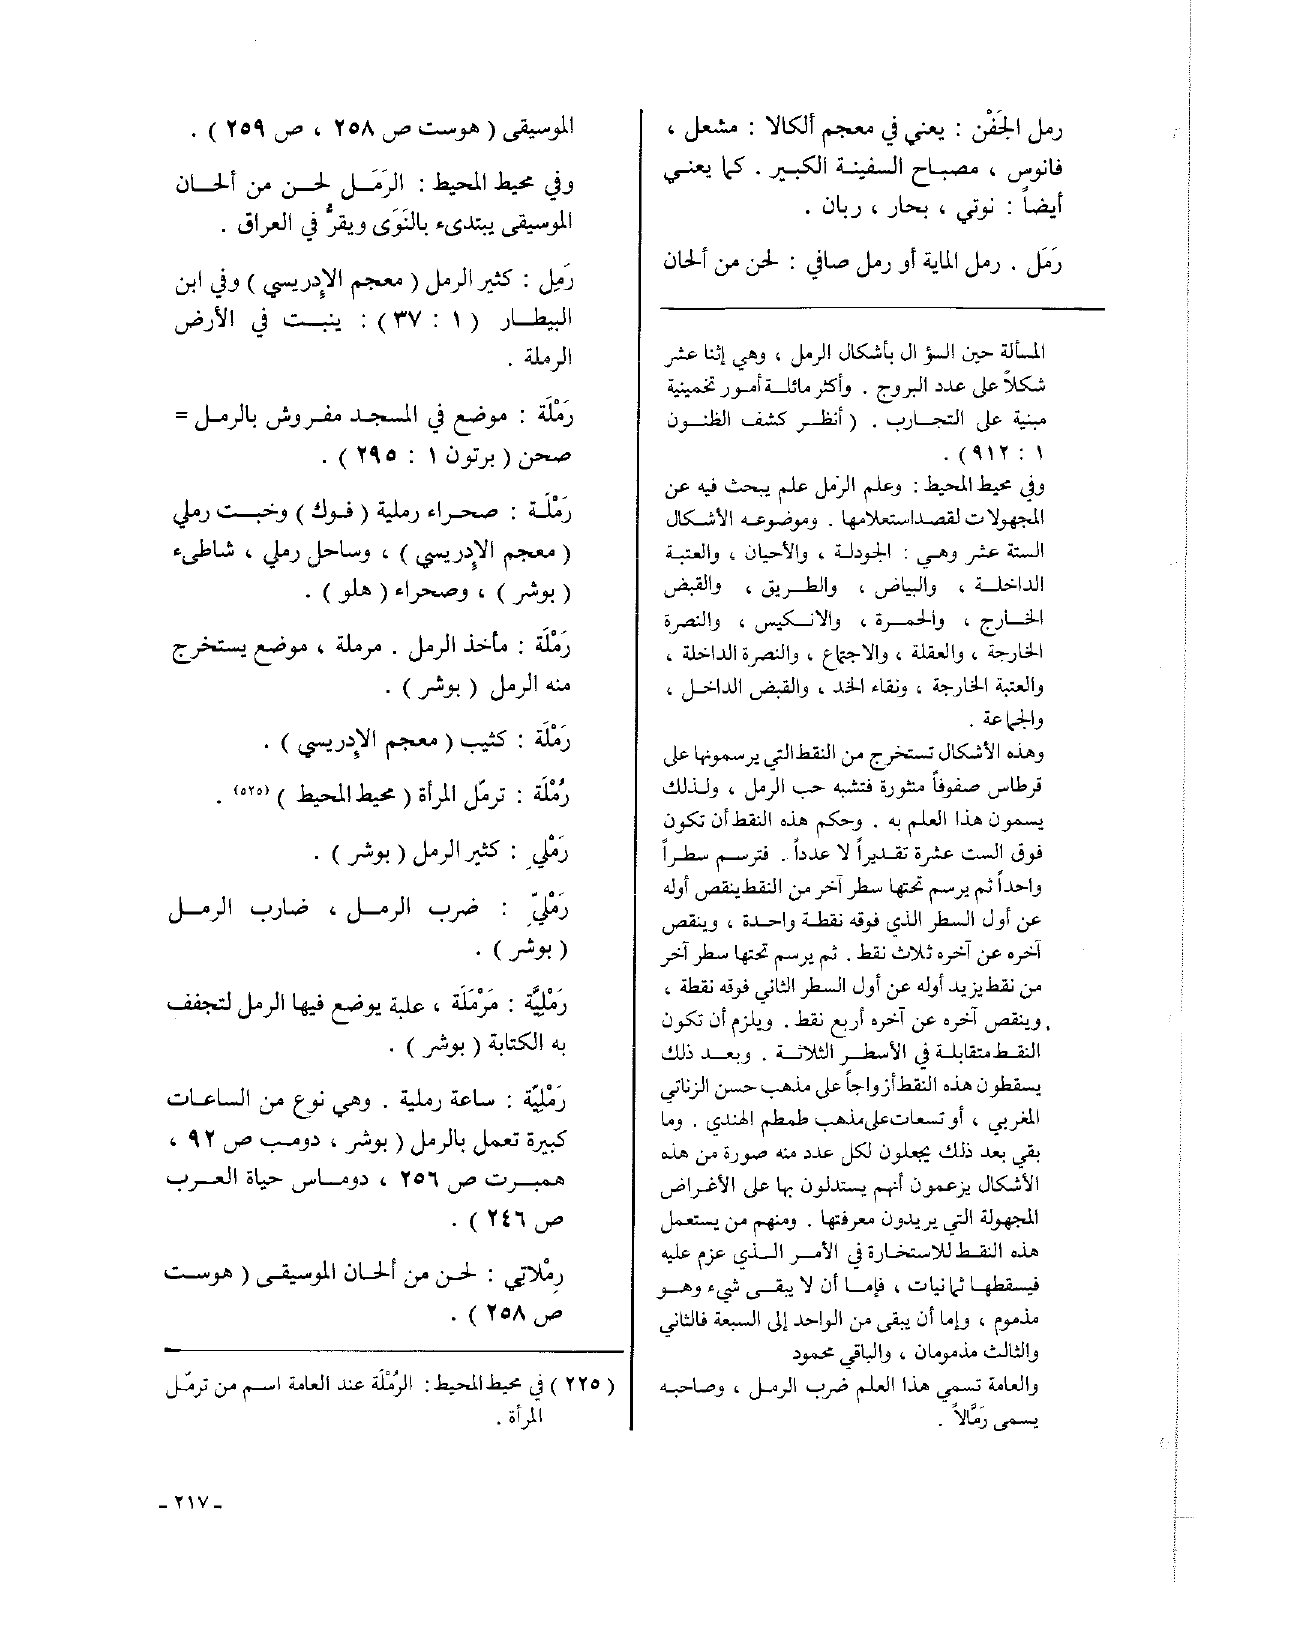 رمل الجَفْن : يعني في معجم ألكالا : مشعل ،
فانوس ، مصباح السفينة الكبير . كما يعني
أيضاً : نوتي ، بحار ، ربان .
رَمَل . رمل الماية أو رمل صافي : لحن من ألحان
المسألة حين السؤال بأشكال الرمل ، وهي إثنا عشر
شكلاً على عدد البروج . وأكثر مائلة أمور تخمينية
مبنية على التجارب . (أنظر كشف الظنون
١ : ٩١٢) .
وفي محيط المحيط : وعلم الرمل علم يبحث فيه عن
المجهولات لقصد استعلامها . وموضوعه الأشكال
الستة عشر وهي : الجودلة ، والأحيان ، والعتبة
الداخلة ، والبياض ، والطريق ، والقبض
الخارج ، والحمرة ، والانكيس ، والنصرة
الخارجة ، والعقلة ، والاجتماع ، والنصرة الداخلة ،
والعتبة الخارجة ، ونقاء الخد ، والقبض الداخل ،
والجماعة .
وهذه الأشكال تستخرج من النقط التي يرسمونها على
قرطاس صفوفاً منثورة فتشبه حب الرمل ، ولذلك
يسمون هذا العلم به . وحكم هذه النقط أن تكون
فوق الست عشرة تقديراً لا عدداً . فترسم سطراً
واحداً ثم يرسم تحتها سطر آخر من النقط ينقص أوله
عن أول السطر الذي فوقه نقطة واحدة ، وينقص
آخره عن آخره ثلاث نقط . ثم يرسم تحتها سطر آخر
من نقط يزيد أوله عن أول السطر الثاني فوقه نقطة ،
وينقص آخره عن آخره أربع نقط . ويلزم أن تكون
النقط متقابلة في الأسطر الثلاثة . وبعد ذلك
يسقطون هذه النقط أزواجاً على مذهب حسن الزناتي
المغربي ، أو تسعات على مذهب طمطم الهندي . وما
بقي بعد ذلك يجعلون لكل عدد منه صورة من هذه
الأشكال يزعمون أنهم يستدلون بها على الأغراض
المجهولة التي يريدون معرفتها . ومنهم من يستعمل
هذه النقط للاستخارة في الأمر الذي عزم عليه
فيسقطها ثمانيات ، فإما أن لا يبقى شيء وهو
مذموم ، وإما أن يبقى من الواحد إلى السبعة فالثاني
والثالث مذمومان ، والباقي محمود
والعامة تسمي هذا العلم ضرب الرمل ، وصاحبه
يسمى رَمَّالاً .
الموسيقى ( هوست ص ٢٥٨ ، ص ٢٥٩ ) .
وفي محيط المحيط : الرَمَل لحن من ألحان
الموسيقى يبتدىء بالنَوَى ويقرُّ في العراق .
رَمِل : كثير الرمل ( معجم الإدريسي ) وفي ابن
البيطار (١ : ٣٧) : ينبت في الأرض
الرملة .
رَمْلَة : موضع في المسجد مفروش بالرمل =
صحن ( برتون ١ : ٢٩٥ ) .
رَمْلَة : صحراء رملية ( فوك ) وخبت رملي
( معجم الإدريسي ) ، وساحل رملي ، شاطىء
( بوشر ) ، وصحراء ( هلو ) .
رَمْلَة : مأخذ الرمل . مرملة ، موضع يستخرج
منه الرمل ( بوشر ) .
رَمْلَة : كثيب ( معجم الإدريسي ) .
رُمْلَة : ترمّل المرأة ( محيط المحيط ) (٥٢٥) .
رَمْلي : كثير الرمل ( بوشر ) .
رَمْليّ : ضرب الرمل ، ضارب الرمل
( بوشر ) .
رَمْلِيَّة : مَرْمَلَة ، علبة يوضع فيها الرمل لتجفف
به الكتابة ( بوشر ) .
رَمْلِيَّة : ساعة رملية . وهي نوع من الساعات
كبيرة تعمل بالرمل ( بوشر ، دومب ص ٩٢ ،
همبرت ص ٢٥٦ ، دوماس حياة العرب
ص ٢٤٦ ) .
رِمْلاتي : لحن من ألحان الموسيقى ( هوست
ص ٢٥٨ ) .
( ٢٢٥ ) في محيط المحيط : الرُمْلَة عند العامة اسم من ترمّل
المرأة .
- ٢١٧ -